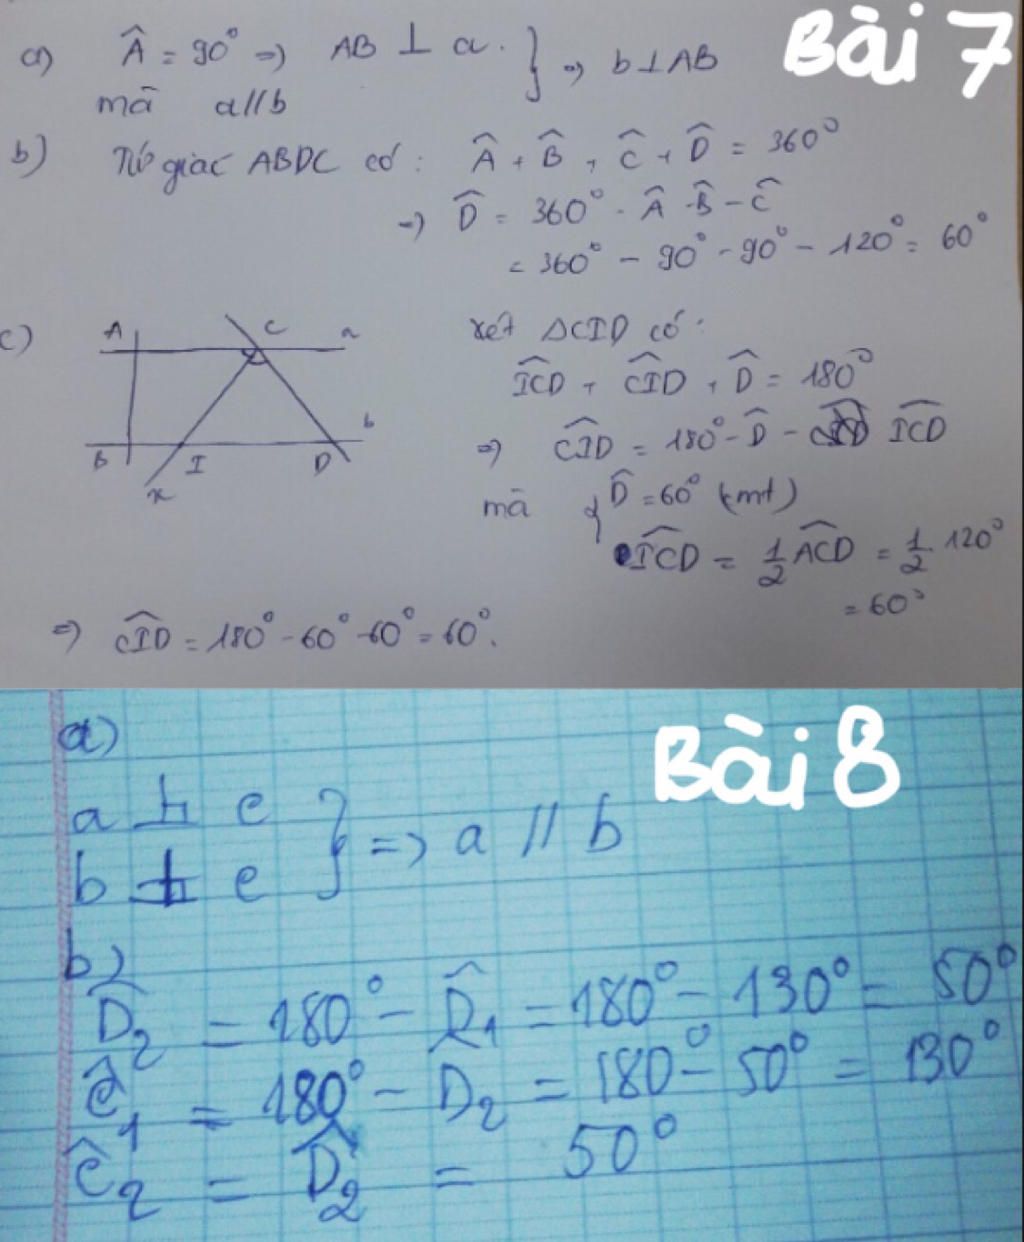 Bài 7
a) Â = 90° => AB ⊥ a. } => b ⊥ AB
mà a//b
b) Tứ giác ABDC có: Â + B̂ + Ĉ + D̂ = 360°
=> D̂ = 360° - Â - B̂ - Ĉ
= 360° - 90° - 90° - 120° = 60°
c) A C a
B I D b
x
xét ΔCID có:
ICD̂ + CID̂ + D̂ = 180°
=> CID̂ = 180° - D̂ - ICD̂
mà { D̂ = 60° (cmt)
ICD̂ = 1/2 ACD̂ = 1/2 . 120°
= 60°
=> CID̂ = 180° - 60° - 60° = 60°.
Bài 8
a)
a ⊥ c } => a // b
b ⊥ c
b)
D̂₂ = 180° - D̂₁ = 180° - 130° = 50°
Ĉ₁ = 180° - D₂ = 180° - 50° = 130°
Ĉ₂ = D̂₂ = 50°